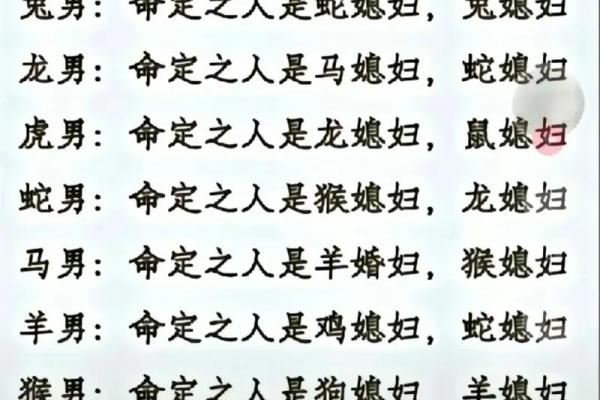 兔男：命定之人是蛇媳妇，兔媳妇
龙男：命定之人是马媳妇，蛇媳妇
虎男：命定之人是龙媳妇，鼠媳妇
蛇男：命定之人是猴媳妇，龙媳妇
马男：命定之人是羊婚妇，猴媳妇
羊男：命定之人是鸡媳妇，蛇媳妇
猴男：命定之人是狗媳妇，羊媳妇